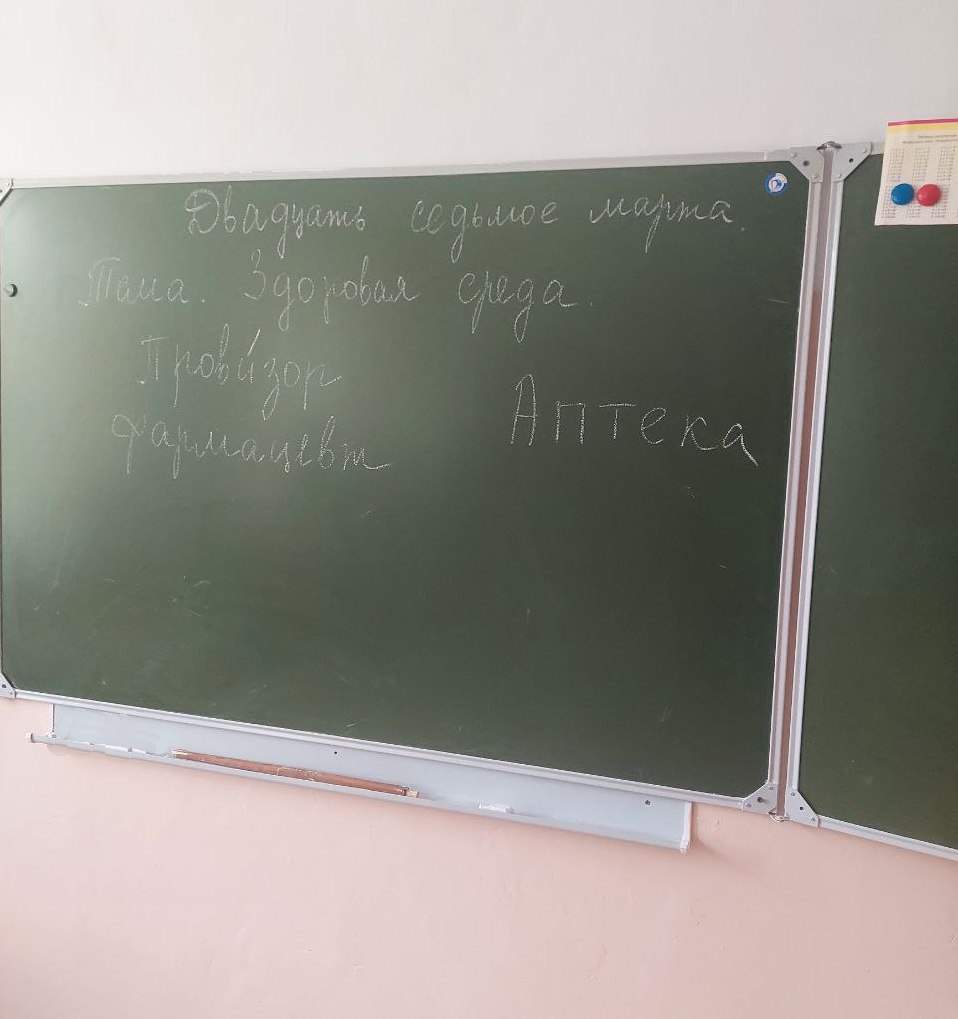 Двадцать седьмое марта.
Тема. Здоровая среда.
Прови́зор
Фармацевт
Аптека